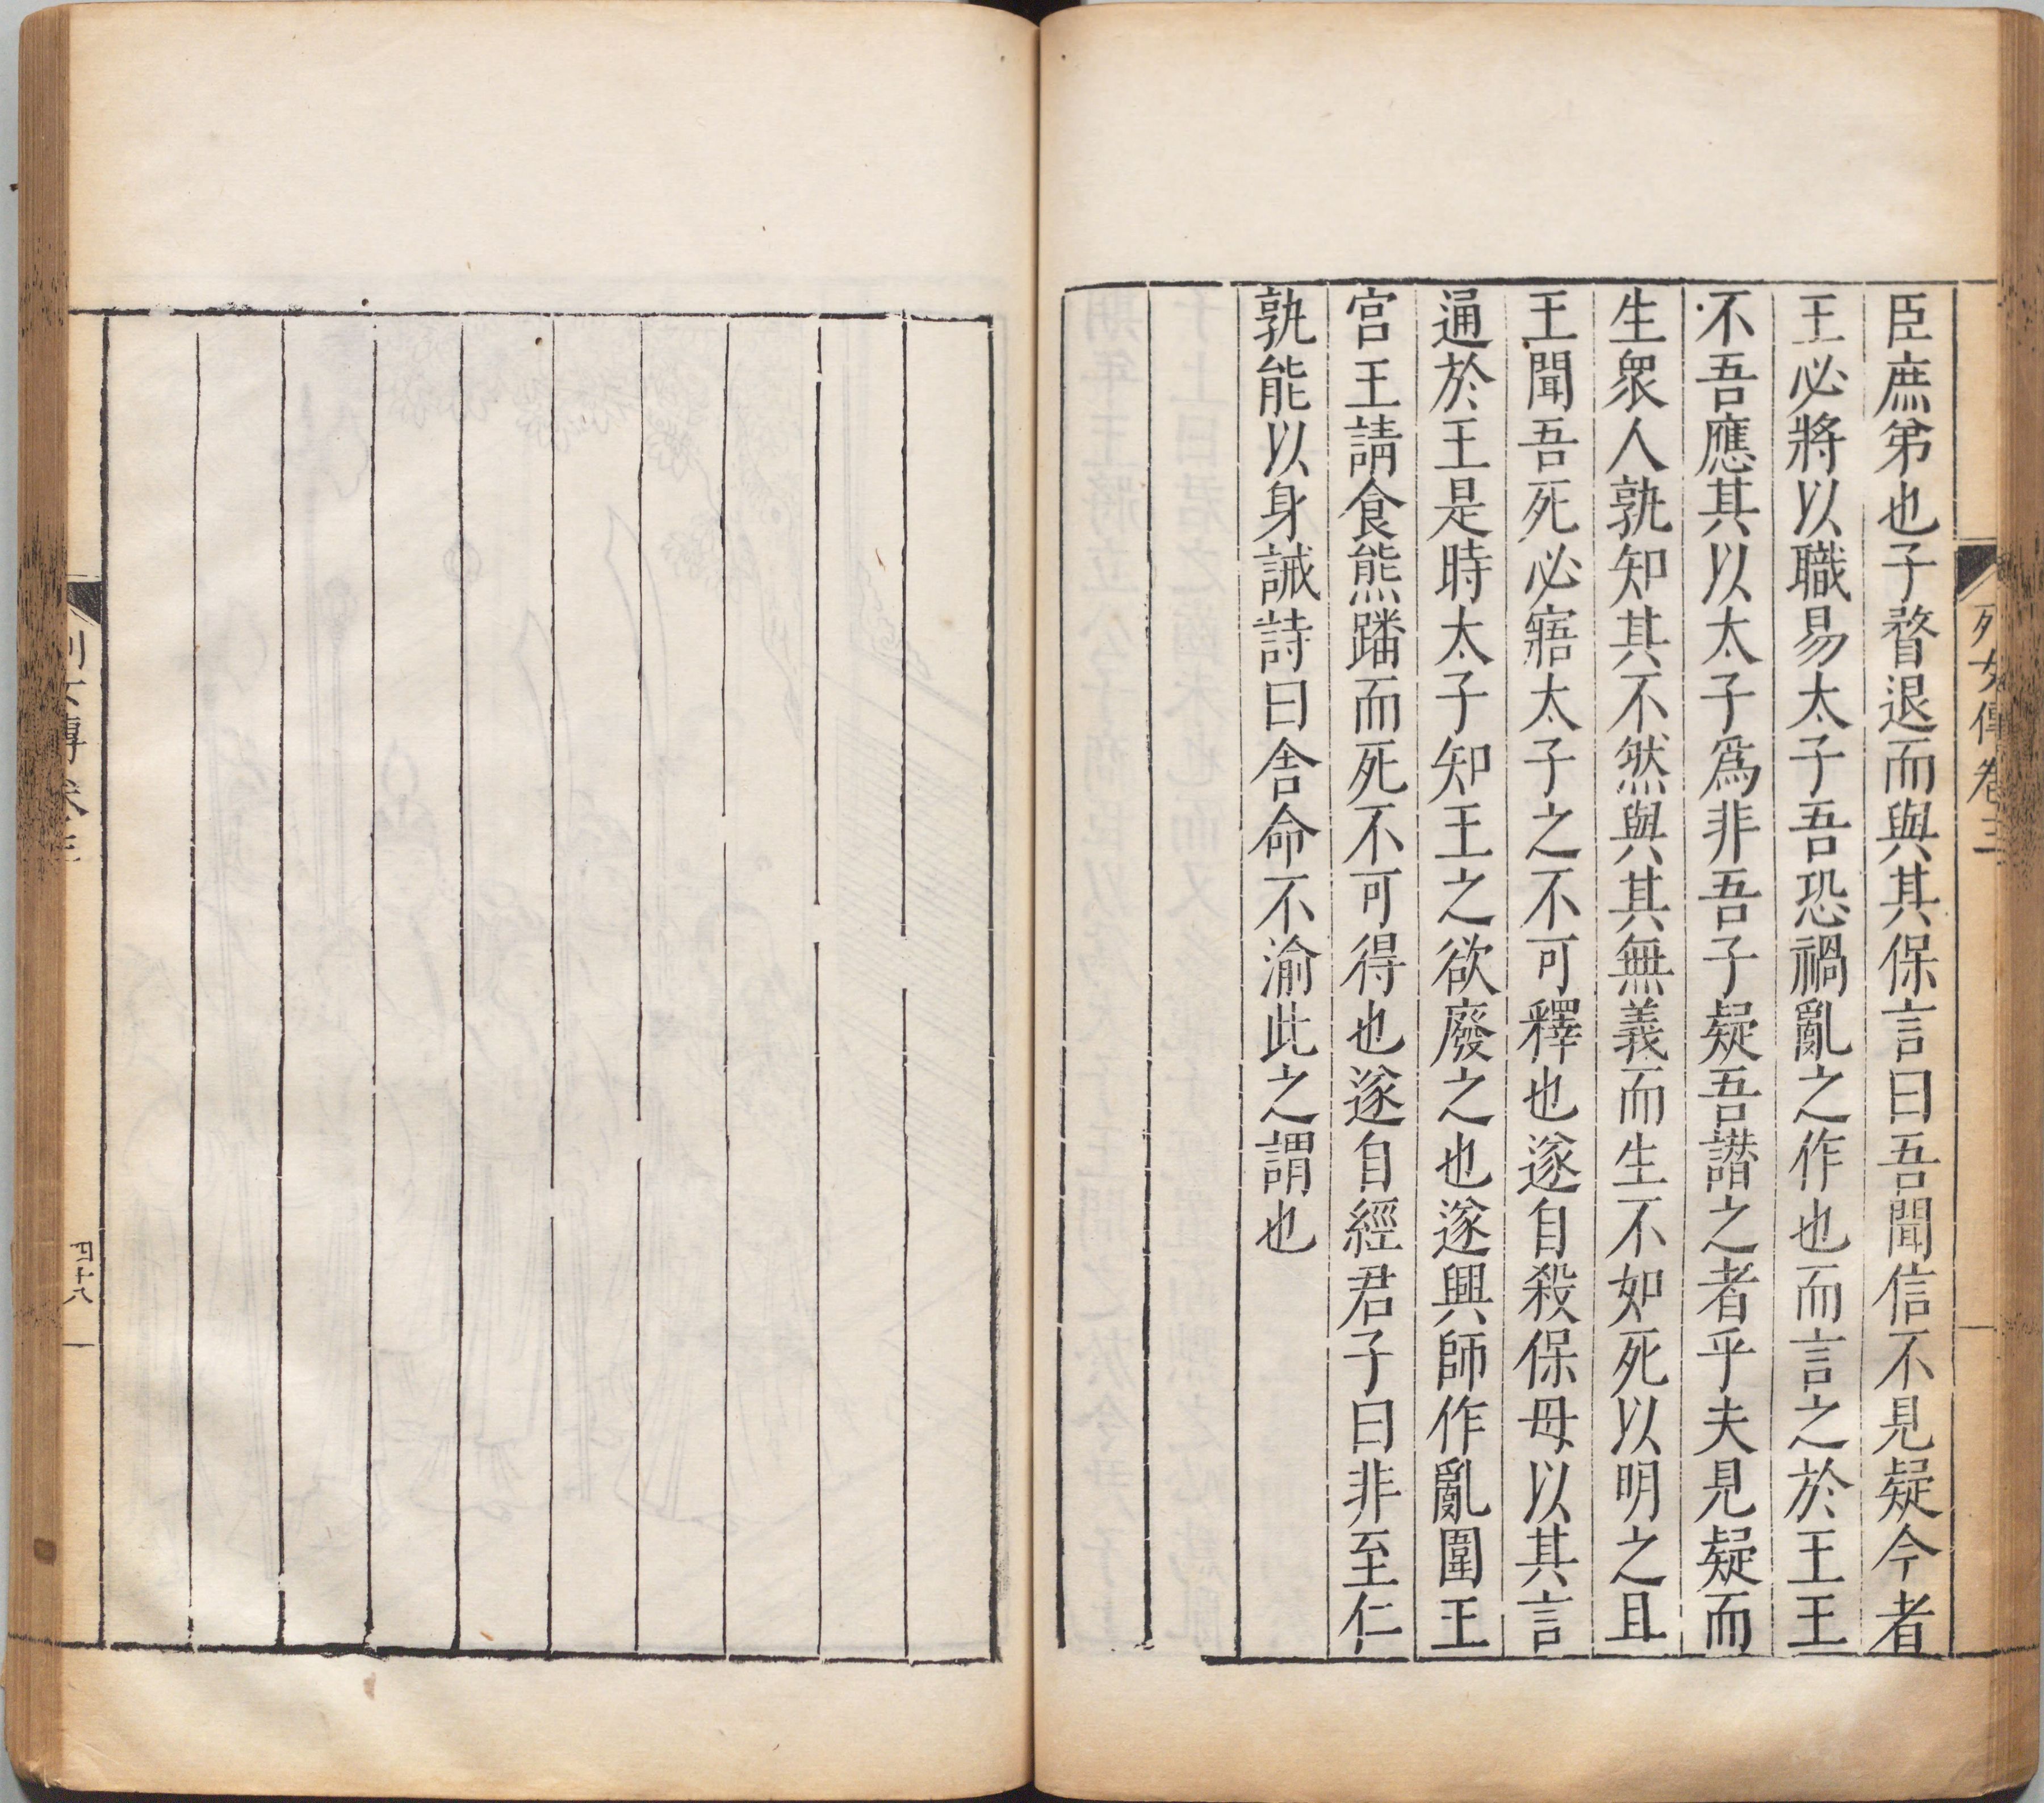 列女傳卷三
臣庶弟也子瞀退而與其保言曰吾聞信不見疑今者
王必將以職易太子吾恐禍亂之作也而言之於王王
不吾應其以太子爲非吾子疑吾譖之者乎夫見疑而
生衆人孰知其不然與其無義而生不如死以明之且
王聞吾死必寤太子之不可釋也遂自殺保母以其言
通於王是時太子知王之欲廢之也遂興師作亂圍王
宫王請食熊蹯而死不可得也遂自經君子曰非至仁
孰能以身誡詩曰舍命不渝此之謂也
列女傳卷三
四十八